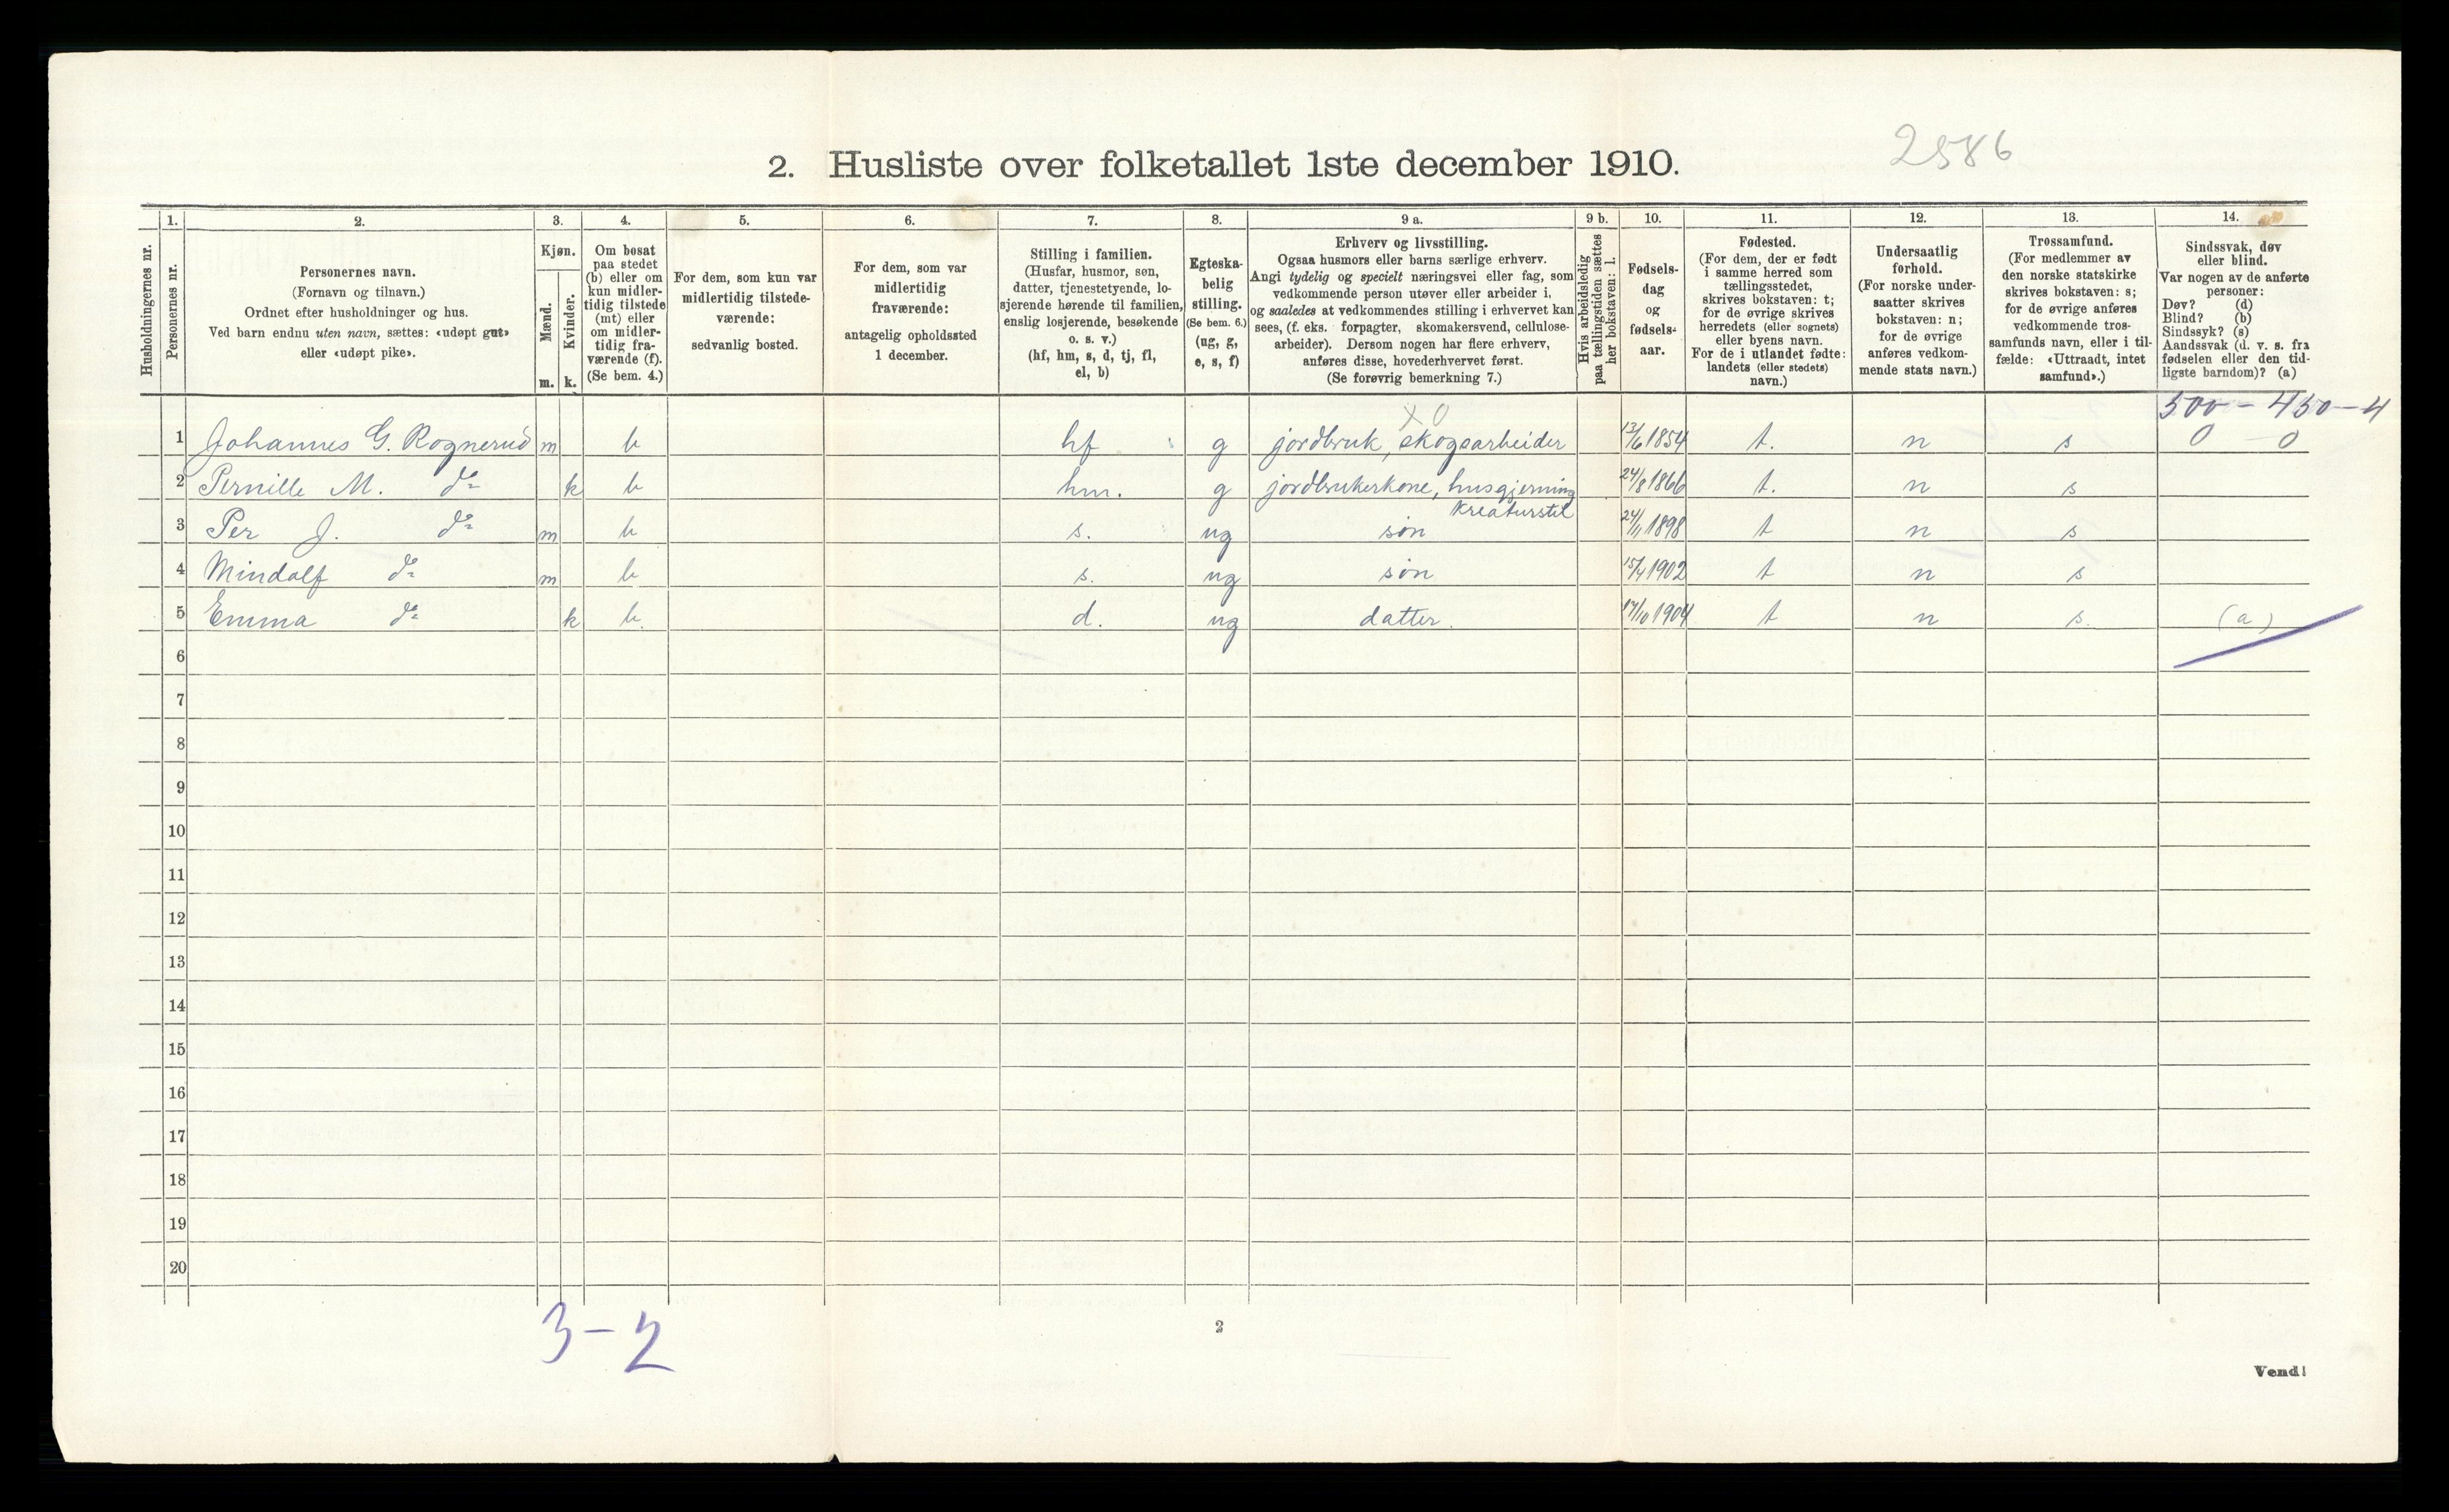 2586
2. Husliste over folketallet 1ste december 1910.
Husholdningernes nr.
1.
Personernes nr.
2.
Personernes navn.
(Fornavn og tilnavn.)
Ordnet efter husholdninger og hus.
Ved barn endnu uten navn, sættes: «udøpt gut»
eller «udøpt pike».
3.
Kjøn.
Mænd.
m.
Kvinder.
k.
4.
Om bosat
paa stedet
(b) eller om
kun midler-
tidig tilstede
(mt) eller
om midler-
tidig fra-
værende (f).
(Se bem. 4.)
5.
For dem, som kun var
midlertidig tilstede-
værende:
sedvanlig bosted.
6.
For dem, som var
midlertidig
fraværende:
antagelig opholdssted
1 december.
7.
Stilling i familien.
(Husfar, husmor, søn,
datter, tjenestetyende, lo-
sjerende hørende til familien,
enslig losjerende, besøkende
o. s. v.)
(hf, hm, s, d, tj, fl,
el, b)
8.
Egteska-
belig
stilling.
(Se bem. 6.)
(ug, g,
e, s, f)
9 a.
Erhverv og livsstilling.
Ogsaa husmors eller barns særlige erhverv.
Angi tydelig og specielt næringsvei eller fag, som
vedkommende person utøver eller arbeider i,
og saaledes at vedkommendes stilling i erhvervet kan
sees, (f. eks. forpagter, skomakersvend, cellulose-
arbeider). Dersom nogen har flere erhverv,
anføres disse, hovederhvervet først.
(Se forøvrig bemerkning 7.)
9 b.
Hvis arbeidsledig
paa tællingstiden sættes
her bokstaven: l.
10.
Fødsels-
dag
og
fødsels-
aar.
11.
Fødested.
(For dem, der er født
i samme herred som
tællingsstedet,
skrives bokstaven: t;
for de øvrige skrives
herredets (eller sognets)
eller byens navn.
For de i utlandet fødte:
landets (eller stedets)
navn.)
12.
Undersaatlig
forhold.
(For norske under-
saatter skrives
bokstaven: n;
for de øvrige
anføres vedkom-
mende stats navn.)
13.
Trossamfund.
(For medlemmer av
den norske statskirke
skrives bokstaven: s;
for de øvrige anføres
vedkommende tros-
samfunds navn, eller i til-
fælde: «Uttraadt, intet
samfund».)
14.
Sindssvak, døv
eller blind.
Var nogen av de anførte
personer:
Døv? (d)
Blind? (b)
Sindssyk? (s)
Aandssvak (d. v. s. fra
fødselen eller den tid-
ligste barndom)? (a)
500 - 450 - 4
x 0
1 Johannes G. Rognerud m b hf g jordbruk, skogsarbeider 13/6 1854 t. n s 0 0
2 Pernille M. do k b hm. g jordbrukerkone, husgjerning kreaturstel 24/8 1866 t. n s
3 Per J. do m b s. ug søn 24/11 1898 t n s
4 Mindolf do m b s. ug søn 15/4 1902 t n s
5 Emma do k b. d. ug datter. 17/10 1904 t n s. (a)
6
7
8
9
10
11
12
13
14
15
16
17
18
19
20
3-2
2
Vend!